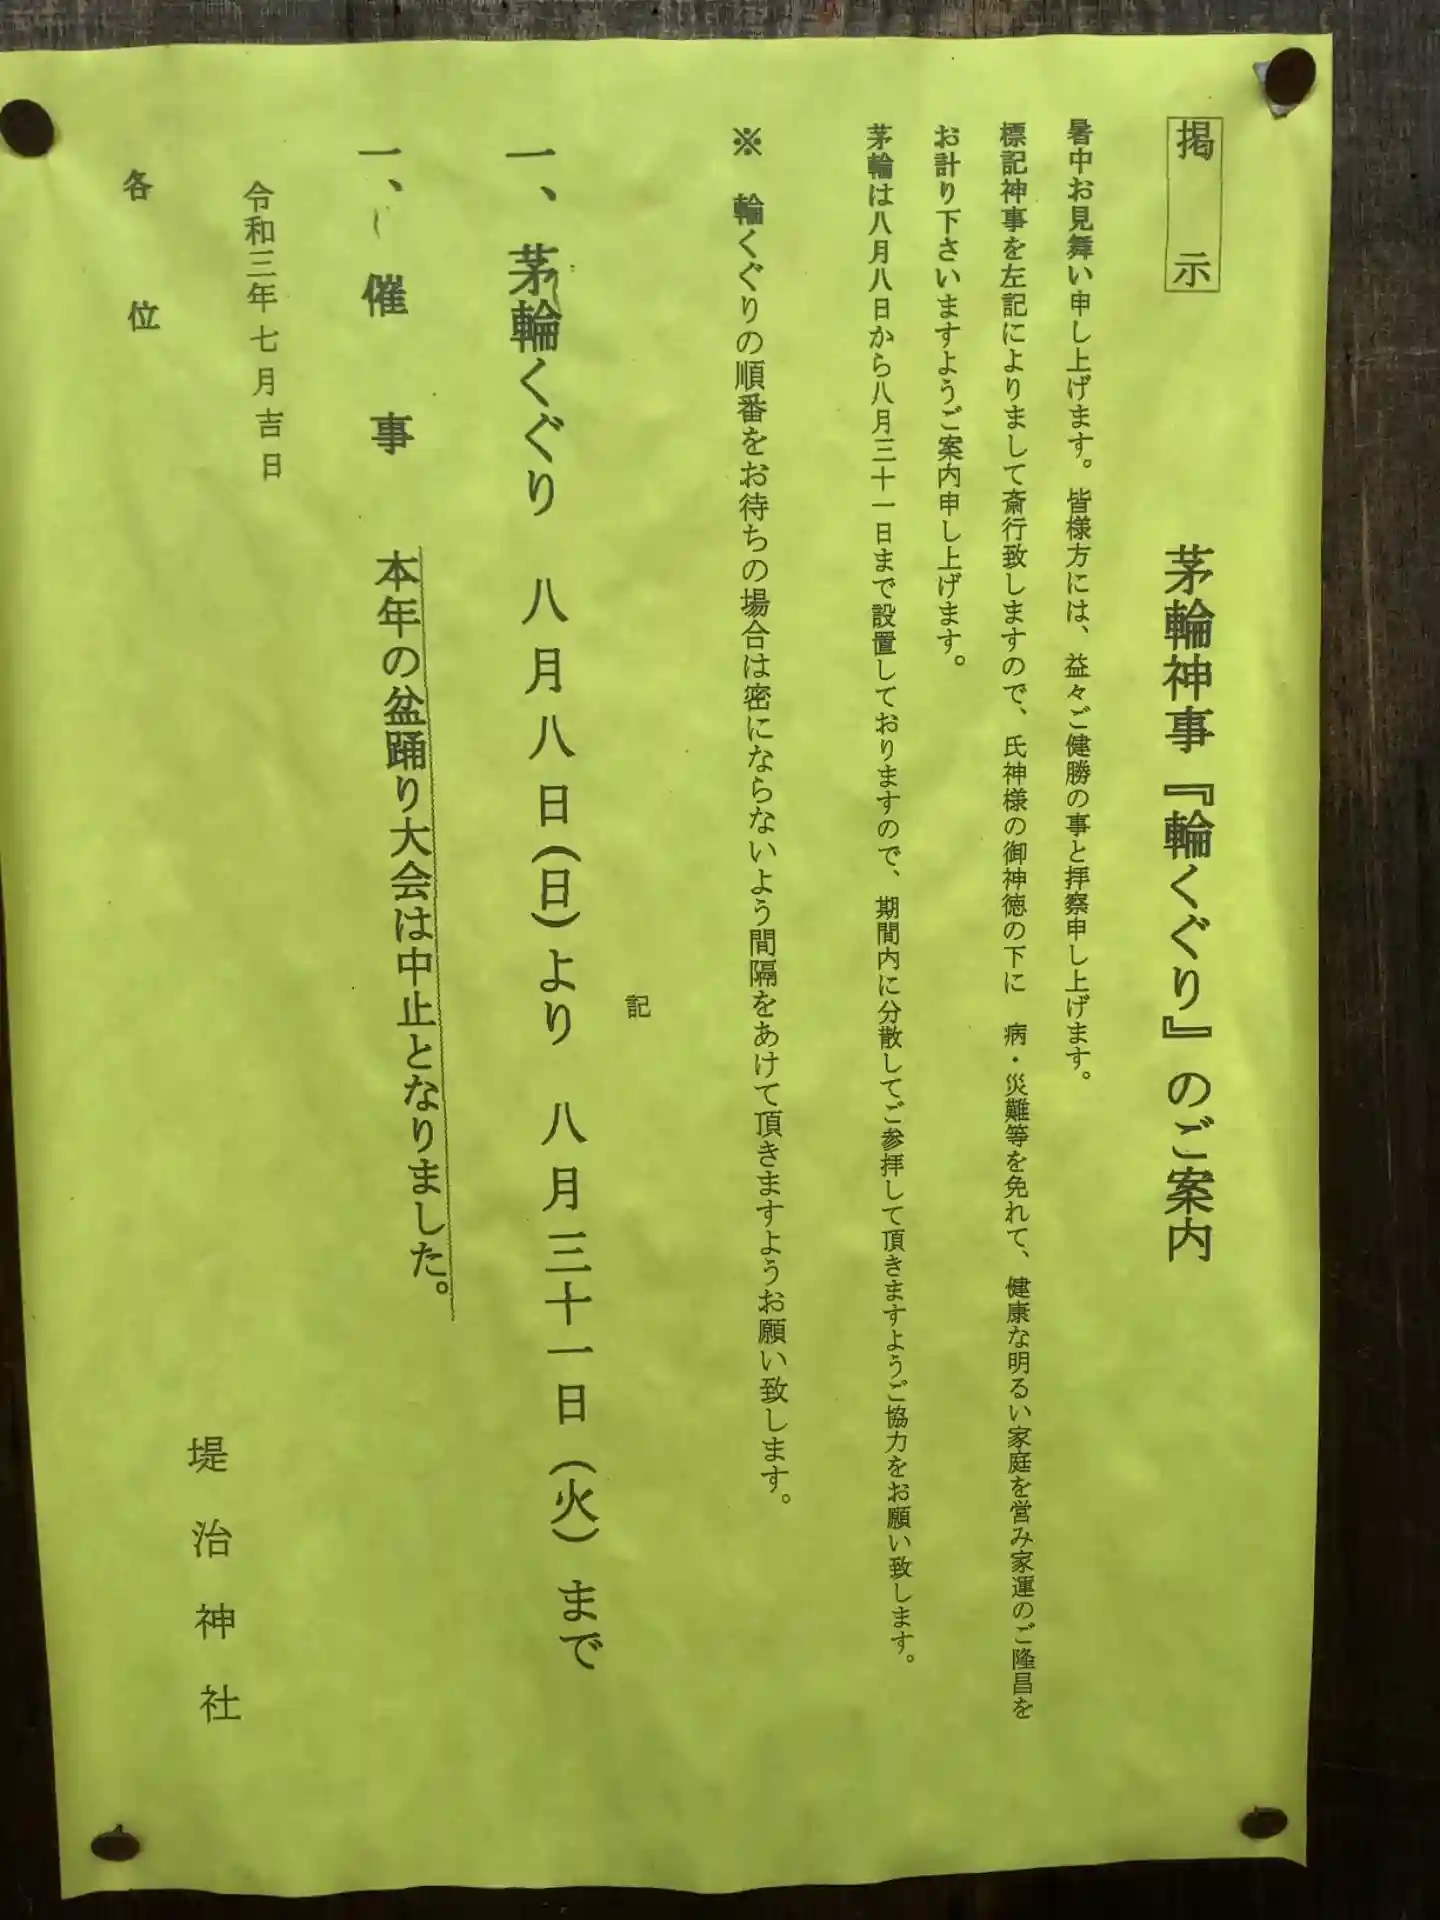 掲示
茅輪神事『輪くぐり』のご案内
暑中お見舞い申し上げます。皆様方には、益々ご健勝の事と拝察申し上げます。
標記神事を左記によりまして斎行致しますので、氏神様の御神徳の下に　病・災難等を免れて、健康な明るい家庭を営み家運のご隆昌を
お計り下さいますようご案内申し上げます。
茅輪は八月八日から八月三十一日まで設置しておりますので、期間内に分散してご参拝して頂きますようご協力をお願い致します。
※　輪くぐりの順番をお待ちの場合は密にならないよう間隔をあけて頂きますようお願い致します。
記
一、茅輪くぐり　八月八日(日)より　八月三十一日(火)まで
一、催事　本年の盆踊り大会は中止となりました。
令和三年七月吉日
堤治神社
各位